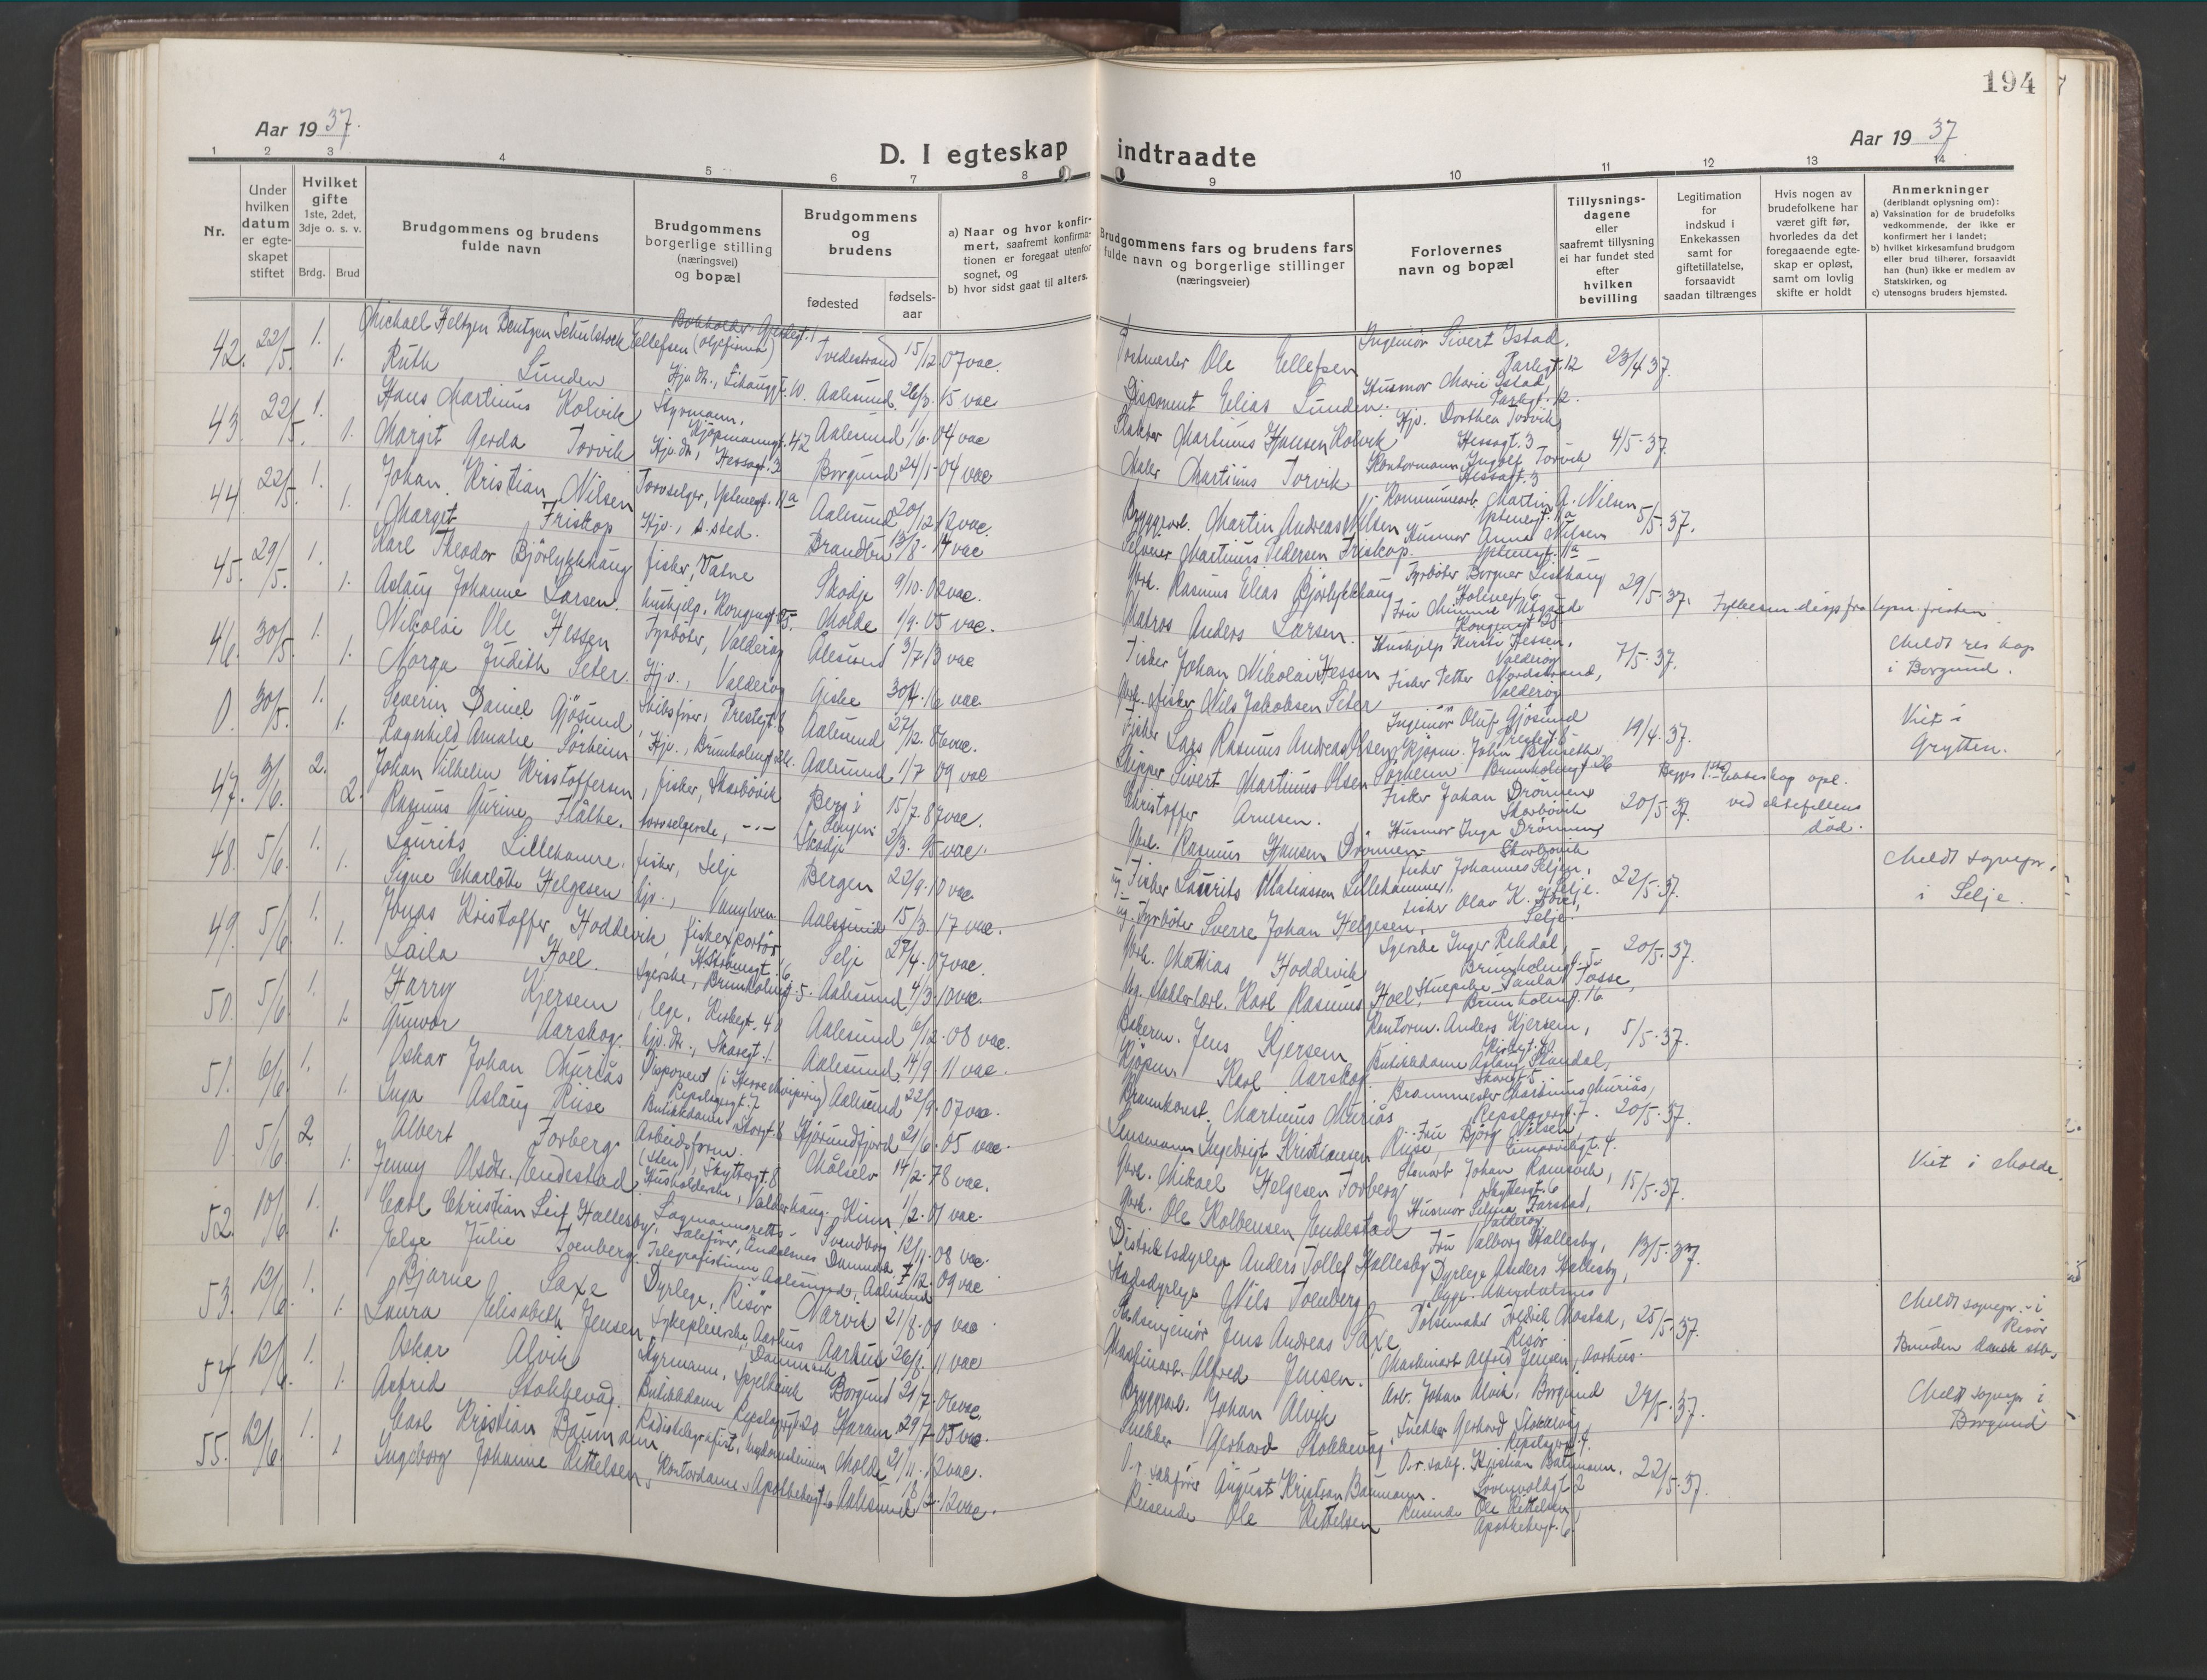 194
Aar 1937.
D. I egteskap indtraadte
Aar 1937
1 2 3 4 5 6 7 8 9 10 11 12 13 14
Nr.
Under hvilken datum er egteskapet stiftet
Hvilket gifte 1ste, 2det, 3dje o. s. v.
Brdg. Brud
Brudgommens og brudens fulde navn
Brudgommens borgerlige stilling (næringsvei) og bopæl
Brudgommens og brudens
fødested
fødselsaar
a) Naar og hvor konfirmert, saafremt konfirmationen er foregaat utenfor sognet, og
b) hvor sidst gaat til alters.
Brudgommens fars og brudens fars fulde navn og borgerlige stillinger (næringsveier)
Forlovernes navn og bopæl
Tillysningsdagene eller saafremt tillysning ei har fundet sted efter hvilken bevilling
Legitimation for indskud i Enkekassen samt for giftetillatelse, forsaavidt saadan tiltrænges
Hvis nogen av brudefolkene har været gift før, hvorledes da det foregaaende egteskap er opløst, samt om lovlig skifte er holdt
Anmerkninger (deriblandt oplysning om):
a) Vaksination for de brudefolks vedkommende, der ikke er konfirmert her i landet;
b) hvilket kirkesamfund brudgom eller brud tilhører, forsaavidt han (hun) ikke er medlem av Statskirken, og
c) utensogns bruders hjemsted.
42. 22/5. 1. Ellefsen Tvedestrand 15/12 07 vac. Ole Ellefsen Ingeniør Sivert Istad, Parkgt. 12 23/4 37.
1. Ruth Lunden Aalesund 15 vac Disponent Elias Lunden. Husmor Marie Istad, Parkgt. 12.
43. 22/5. 1. Hans Martinus Kolvik Styrmann, Kjøpmannsgt. 42 Aalesund 1/6. 04 vac Martinus Hansen Kolvik Hjv. Dorthea Torvik, Hessagt. 3 4/5 - 37.
1. Margit Gerda Torvik Hju. dt., Hessagt. 3 Borgund 24/1 - 04 vac Maler Martinus Torvik Kontormann Ingolf Torvik, Hessagt. 3
44. 22/5. 1. Johan Kristian Nilsen Torvselger, 11a Aalesund 20/12 12 vac. Bryggearb. Martin Andreas Nilsen Kommunearb. Martin A. Nilsen 11a 5/5 - 37.
1. Marget Friskop Hjv., s. sted. 13/8 - 14 vac Martinus Pedersen Friskop. Husmor Anna Nilsen 11a
45. 29/5. 1. Karl Theodor Bjørlykkhaug fisker, Vatne Skodje 9/10. 02 vac. Gbrk. Rasmus Elias Bjørlykkhaug Fyrbøter 29/5 - 37.
1. Aslaug Johanne Larsen. hushjelp, Kongensgt. Molde 1/9. 05 vac. Matros Anders Larsen. Kongensgt. 25
46. 30/5. 1. Nikolai Ole Hessen Fyrbøter, Valderøy Alesund 3/7 13 vac Fisker Johan Nikolai Hessen Hushjelp Kirsti Hessen, Valderøy 7/5 - 37. Meldt res kap i Borgund.
1. Norga Judith Seter. Hjv., Valderøy Giske 30/4. 16 vac. Gbrk. fisker Nils Jakobsen Seter Fisker Petter Nordstrand, Valderøy
0. 30/5. 1. Severin Daniel Gjøsund Skibsfører, Prestegt. 8 Aalesund 27/12. 06 vac. Fisker Lars Rasmus Andreas Olsen Ingeniør Oluf Gjøsund Prestegt. 8 19/4. 37. Viet i Grytten.
1. Ragnhild Amalie Sørheim Hjv., Brunholmgt. 26. Aalesund 1/7 09 vac Skipper Sivert Martinus Olsen Sørheim Brunholmgt 26
47. 3/6. 2. Johan Vilhelm Kristoffersen, fisker, Skarbøvik Berg i Senjen 15/7. 87 vac. Christoffer Arnesen. Fisker Johan Drønnen Skarbøvik 20/5. 37. Begges 1ste Ekteskap opl. ved ektefellens død.
2. Rasmus Gurine Flåtke. torvselgerske, -"- Skodje 2/3. 95 vac. Gbrk. Rasmus Hansen Drønnen. Husmor Inga Drønnen, Skarbøvik
48. 5/6. 1. Laurits Lillehamre. fisker, Selje Bergen 22/9. 10 vac. Fisker Laurits Matiassen Lillehammer, fisker Johannes Seljen, Selje. 22/5 - 37. Meldt sognepr. i Selje.
1. Signe Charlotte Helgesen hjv., Vanylven. Aalesund 15/3. 17 vac. Fyrbøter Sverre Johan Helgesen, fisker Olav K. Selje.
49. 5/6. 1. Jonas Kristoffer Hoddevik, fiskeexportør, Selje 27/4. 07 vac. Gbrk. Mattias Hoddevik Syerske Inger Rekdal, Brunholmgt. 5. 20/5. 37.
1. Laila Hoel. Syerske, Brunholmgt. 5. Aalesund 4/3. 10 vac. Karl Rasmus Hoel, Paula Tosse, Brunholmgt. 16
50. 5/6. 1. Harry Kjersem lege, Kirkegt. 40 Aalesund 6/12. 08 vac. Bakerm. Jens Kjersem Kontorm. Anders Kjersem, Kirkegt. 40 5/5 - 37.
1. Gunvor Aarskog. hjv. dt., Skaregt. 1. Aalesund 14/9 11 vac. Kjøpm. Karl Aarskog. Butikkdame Aslaug Skundal, Skaregt. 5
51. 6/6. 1. Oskar Johan Muriås Disponent (i Herreekvipering) Repslagergt. 7 Aalesund 22/9. 07 vac. Brannkonst. Martinus Muriås Brannmester Martinus Muriås, Repslagergt. 7. 20/5. 37.
1. Inga Aslaug Riise Butikkdame Storgt. 8 Hjørundfjord 21/6. 05 vac. Lensmann Ingebrigt Kristiansen Riise, Fru Bjørg Nilsen, Einarvikgt. 4.
0. 5/6. 2. Albert Forberg Arbeidsform. (sten), Skyttergt. 8 Målselv 14/2. 78 vac. Gbrk. Mikael Helgesen Forberg Stenarb Johan Ramsvik, Skyttergt. 6 15/5 - 37. Viet i Molde.
1. Jenny Olsdtr. Endestad Husholderske, Valderhaug. Kinn 1/2. 01 vac. Gbrk. Ole Kolbensen Endestad Husmor Selma Farstad, Valderøy
52. 10/6. 1. Carl Christian Leif Hallesby. Sagmannsretts-Sakfører, Åndalsnes Svendborg Danmark 12/11. 08 vac. Distriktsdyrlege Anders Tollef Hallesby Fru Valborg Hallesby, 13/5 - 37.
1. Else Julie Toenberg. Telegrafistinne, Aalesund, Aalesund 7/12. 09 vac Stadsdyrlege Nils Toenberg Dyrlege Anders Hallesby,
53. 12/6. 1. Bjarne Saxe Dyrlege, Risør Narvik 21/8. 09 vac. Jens Andreas Saxe Fredrik Aastad, Risør 25/5. 37. Meldt sognepr. i Risør
1. Laura Elisabeth Jensen Sykepleierske, Aarhus Danmark Aarhus 26/8. 11 vac Maskinarb. Alfred Jensen. Maskinarb Alfred Jensen, Aarhus. Bruden dansk stb.
54. 12/6. 1. Oskar Alvik Styrmann, Spjelkavik Borgund 21/7. 06 vac. Bryggearb. Johan Alvik Arb. Johan Alvik, Borgund 24/5. 37. Meldt sognepr i Borgund
1. Astrid Stokkevåg. Butikkdame Repslagergt 20 Haram 29/7. 05 vac. Snekker Gerhard Stokkevåg. Snekker Gerhard Stokkevåg, Repslagergt.
55. 12/6. 1. Carl Kristian Baumann Radiotelegrafist, Molde 21/11. 12 vac. O.r. sakfører August Kristian Baumann. O.r. sakf. Kristian Baumann. Løvenvoldgt 2 22/5 - 37.
1 Ingeborg Johanne Kittelsen, Kontordame, Apothekergt. 6 Aalesund 18/2. 12 vac. Reisende Ole Kittelsen Reisende Ole Kittelsen Apothekergt. 6